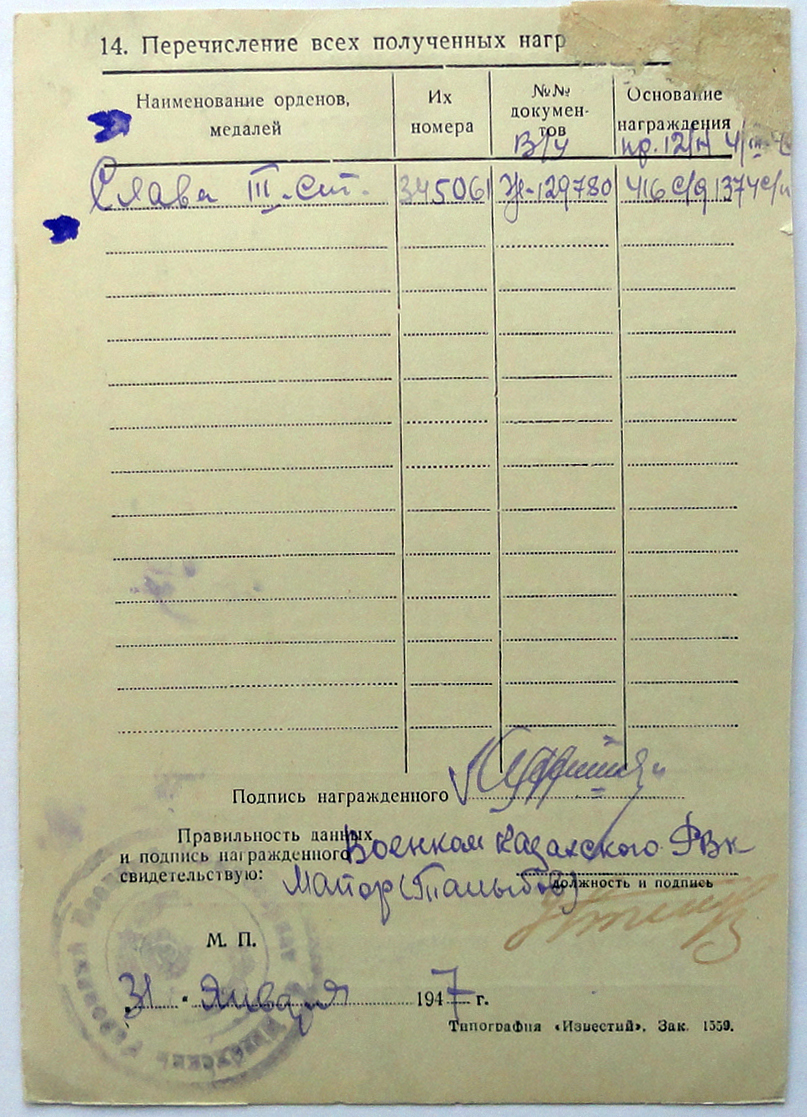 14. Перечисление всех полученных нагр
Наименование орденов, медалей
Их номера
№№ докумен-тов
Основание награждения
В/у
пр. 12/н 4/III-4
Слава III-ст.
345061
Ж-129780
416 с/д 1374 с/п
Подпись награжденного
Правильность данных
и подпись награжденного
свидетельствую:
Военком Казахского РВК
Майор (Талыбов)
должность и подпись
М. П.
31 Января 1947 г.
Типография «Известий». Зак. 1559.